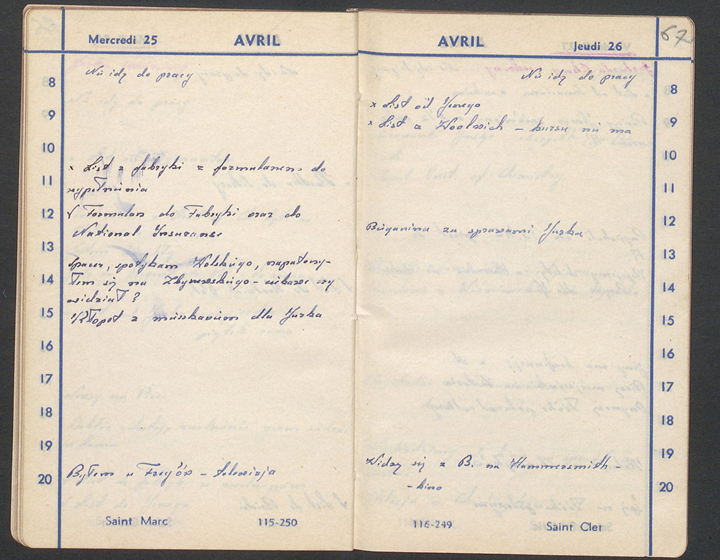 Mercredi 25 AVRIL
8
Nie idę do pracy
9
10
x List z fabryki z formularzem do
11
wypełnienia
12
V Formularz do Fabryki oraz do
National Insurance
13
Spacer, spotykam Wolskiego, napatoczy-
14
łem się na Zbyszewskiego - ciekawe czy
widział?
15
Kłopot z mieszkaniem dla Jurka
16
17
18
19
20
Byłem u - telewizja
Saint Marc 115-250
67
AVRIL Jeudi 26
8
Nie idę do pracy
x List od Jerzego
9
x List z Woolwich - kursu nie ma
10
11
12
Bieganina za sprawami Jurka
13
14
15
16
17
18
19
Widzę się z B. na Hammersmith -
- kino
20
116-249 Saint Clet